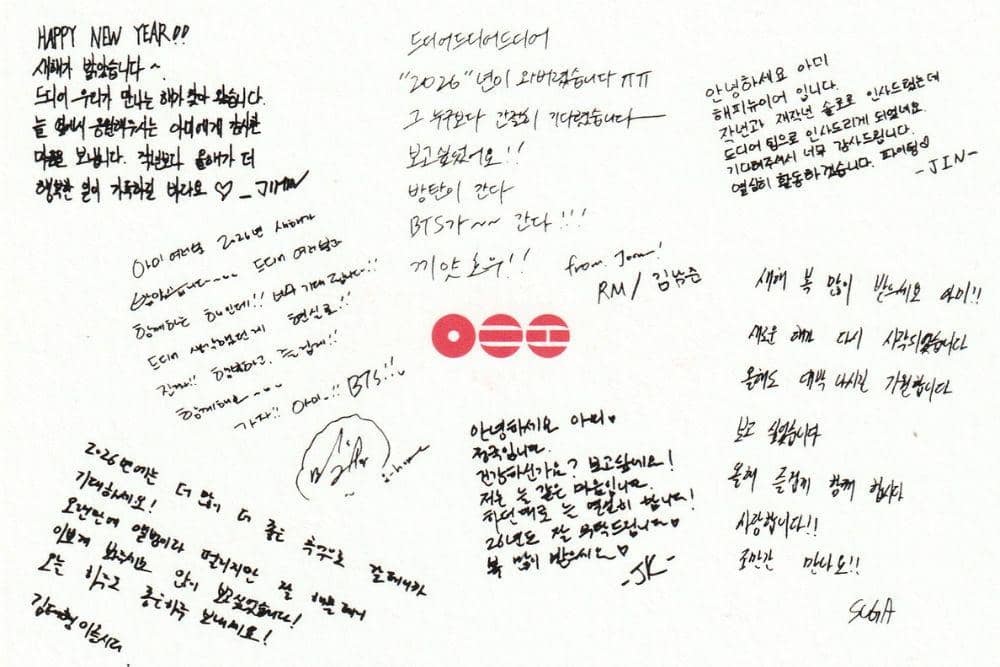 HAPPY NEW YEAR!!
새해가 밝았습니다~
드디어 우리가 만나는 해가 왔습니다.
늘 옆에서 응원해주시는 아미에게 감사한
마음을 보냅니다. 작년보다 올해가 더
행복한 일이 가득하길 바라요 ♡ _JIMIN
드디어드디어드디어
"2026"년이 와버렸습니다 ㅠㅠ
그 누구보다 간절히 기다렸습니다
보고싶었어요!!
방탄이 간다
BTS가~~ 간다!!!
끼얏호우!!
from. Joon!
RM / 김남준
안녕하세요 아미
해피뉴이어 입니다.
작년과 재작년 솔로로 인사드렸는데
드디어 팀으로 인사드리게 되었네요.
기다려주셔서 너무 감사드립니다.
열심히 활동하겠습니다. 파이팅♡
-JIN-
아미 여러분 2026년 새해가
밝았습니다~~~ 드디어 여러분과
함께하는 해인데!! 너무 기대됩니다!!
드디어 생각했던게 현실로!!
진짜!! 행복하고 즐겁게!!
함께해요~~~
가자!! 아미~!! BTS!!
새해 복 많이 받으세요 아미!!
새로운 해가 다시 시작되었습니다
올해도 대박 나시길 기원합니다
보고 싶었습니다
올해 즐겁게 함께 합시다
사랑합니다!!
조만간 만나요!!
SUGA
안녕하세요 아미♥
정국입니다.
건강하신가요? 보고싶네요!
저는 늘 같은 마음입니다.
하던대로 늘 열심히 합니다!
26년도 잘 부탁드립니다♥
복 많이 받으세요♡
-JK-
2026년에는 더 많이 더 좋은 추억으로 갈테니까
기대하세요!
오랜만에 앨범이라 떨리지만 잘 해볼테니
이쁘게 봐주시고 많이 보고싶었습니다!
오늘 하루도 좋은하루 보내세요!
김태형 이었습니다